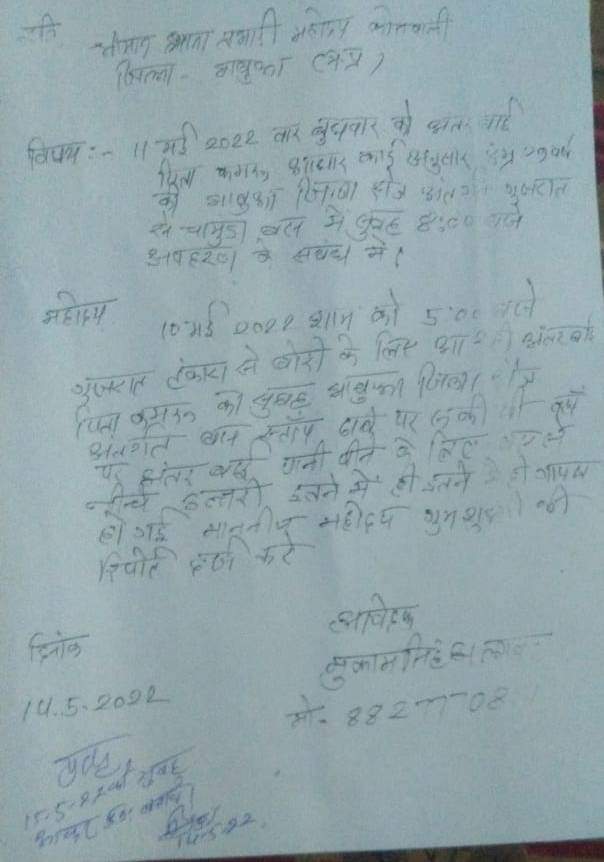 प्रति
श्रीमान थाना प्रभारी महोदय कोतवाली
जिला - झाबुआ (म.प्र)
विषय :- 11 मई 2022 वार बुधवार को अंतर बाई
पिता कमरू आधार कार्ड अनुसार उम्र वर्ष
को झाबुआ जिला क्षेत्र अंतर्गत गुजरात
से चामुंडा बस में सुबह 8:00 बजे
अपहरण के संबंध में।
महोदय 10 मई 2022 शाम को 5:00 बजे
गुजरात टंकारा से बोरी के लिए आ रही अंतर बाई
पिता कमरू को सुबह झाबुआ जिला क्षेत्र
अंतर्गत बस स्टॉप ढाबे पर रुकी थी
पर अंतर बाई पानी पीने के लिए
नीचे उतरी इतने में ही इतने में ही गायब
हो गई माननीय महोदय गुमशुदा की
रिपोर्ट दर्ज करे
दिनांक
14.5.2022
आवेदक
मुकाम
मो - 88277708
15-5-22 को सुबह
14-5-22